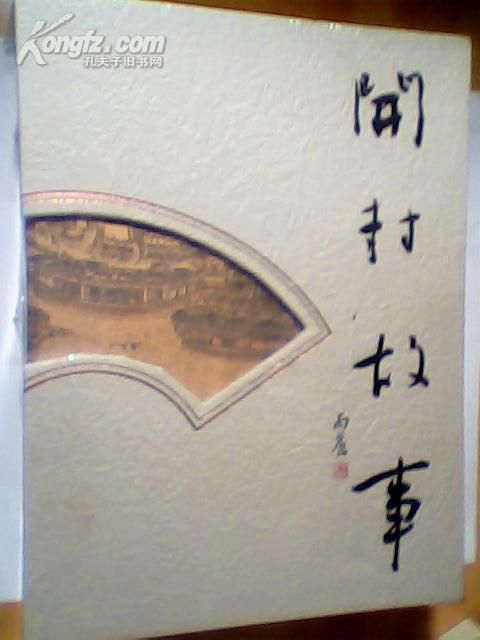 Kongfz.com
孔夫子旧书网
開封故事